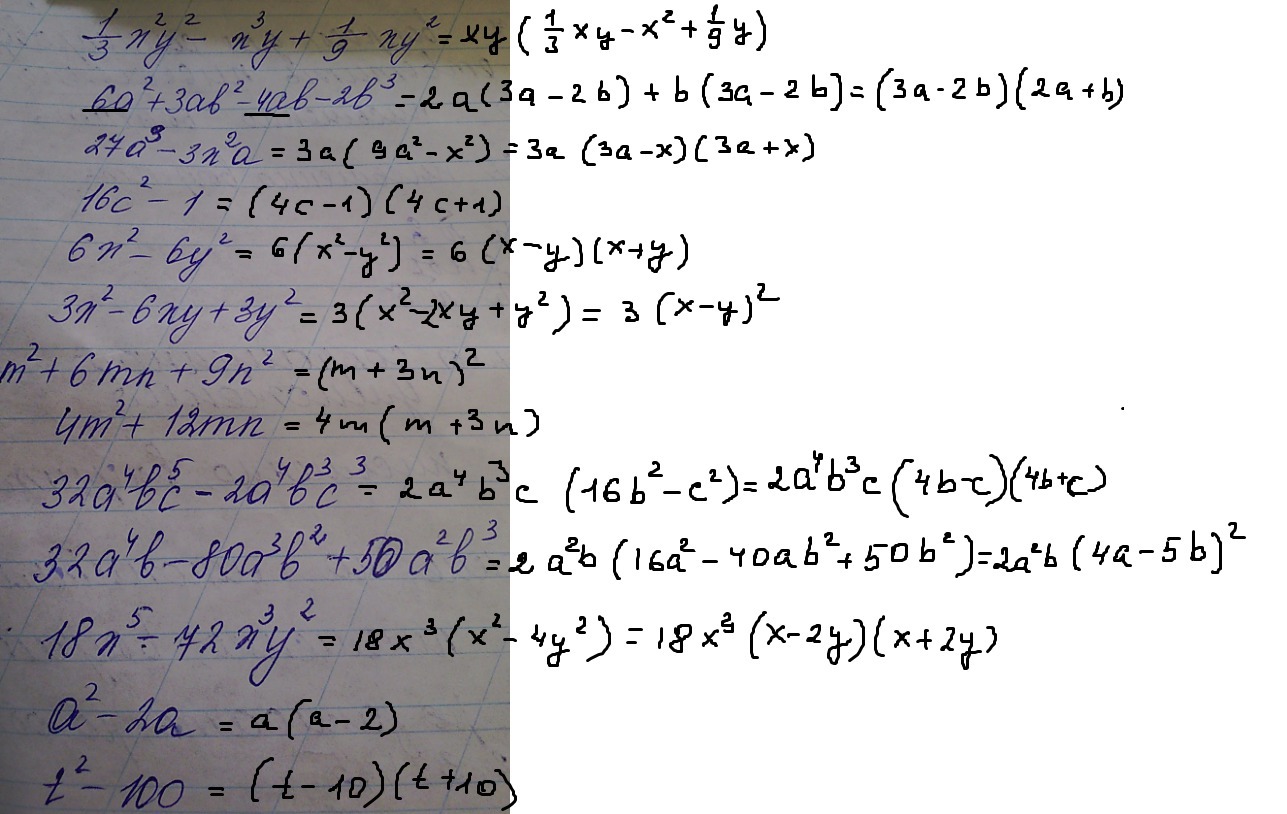 1/3 x²y² - x³y + 1/9 xy² = xy (1/3 xy - x² + 1/9 y)
6a² + 3ab² - 4ab - 2b³ = 2a (3a - 2b) + b (3a - 2b) = (3a - 2b)(2a + b)
27a³ - 3x²a = 3a (9a² - x²) = 3a (3a - x)(3a + x)
16c² - 1 = (4c - 1)(4c + 1)
6x² - 6y² = 6 (x² - y²) = 6 (x - y)(x + y)
3x² - 6xy + 3y² = 3 (x² - 2xy + y²) = 3 (x - y)²
m² + 6mn + 9n² = (m + 3n)²
4m² + 12mn = 4m (m + 3n)
32a⁴b⁵c - 2a⁴b³c³ = 2a⁴b³c (16b² - c²) = 2a⁴b³c (4b - c)(4b + c)
32a⁴b - 80a³b² + 50a²b³ = 2a²b (16a² - 40ab² + 50b²) = 2a²b (4a - 5b)²
18x⁵ - 72x³y² = 18x³ (x² - 4y²) = 18x³ (x - 2y)(x + 2y)
a² - 2a = a (a - 2)
t² - 100 = (t - 10)(t + 10)